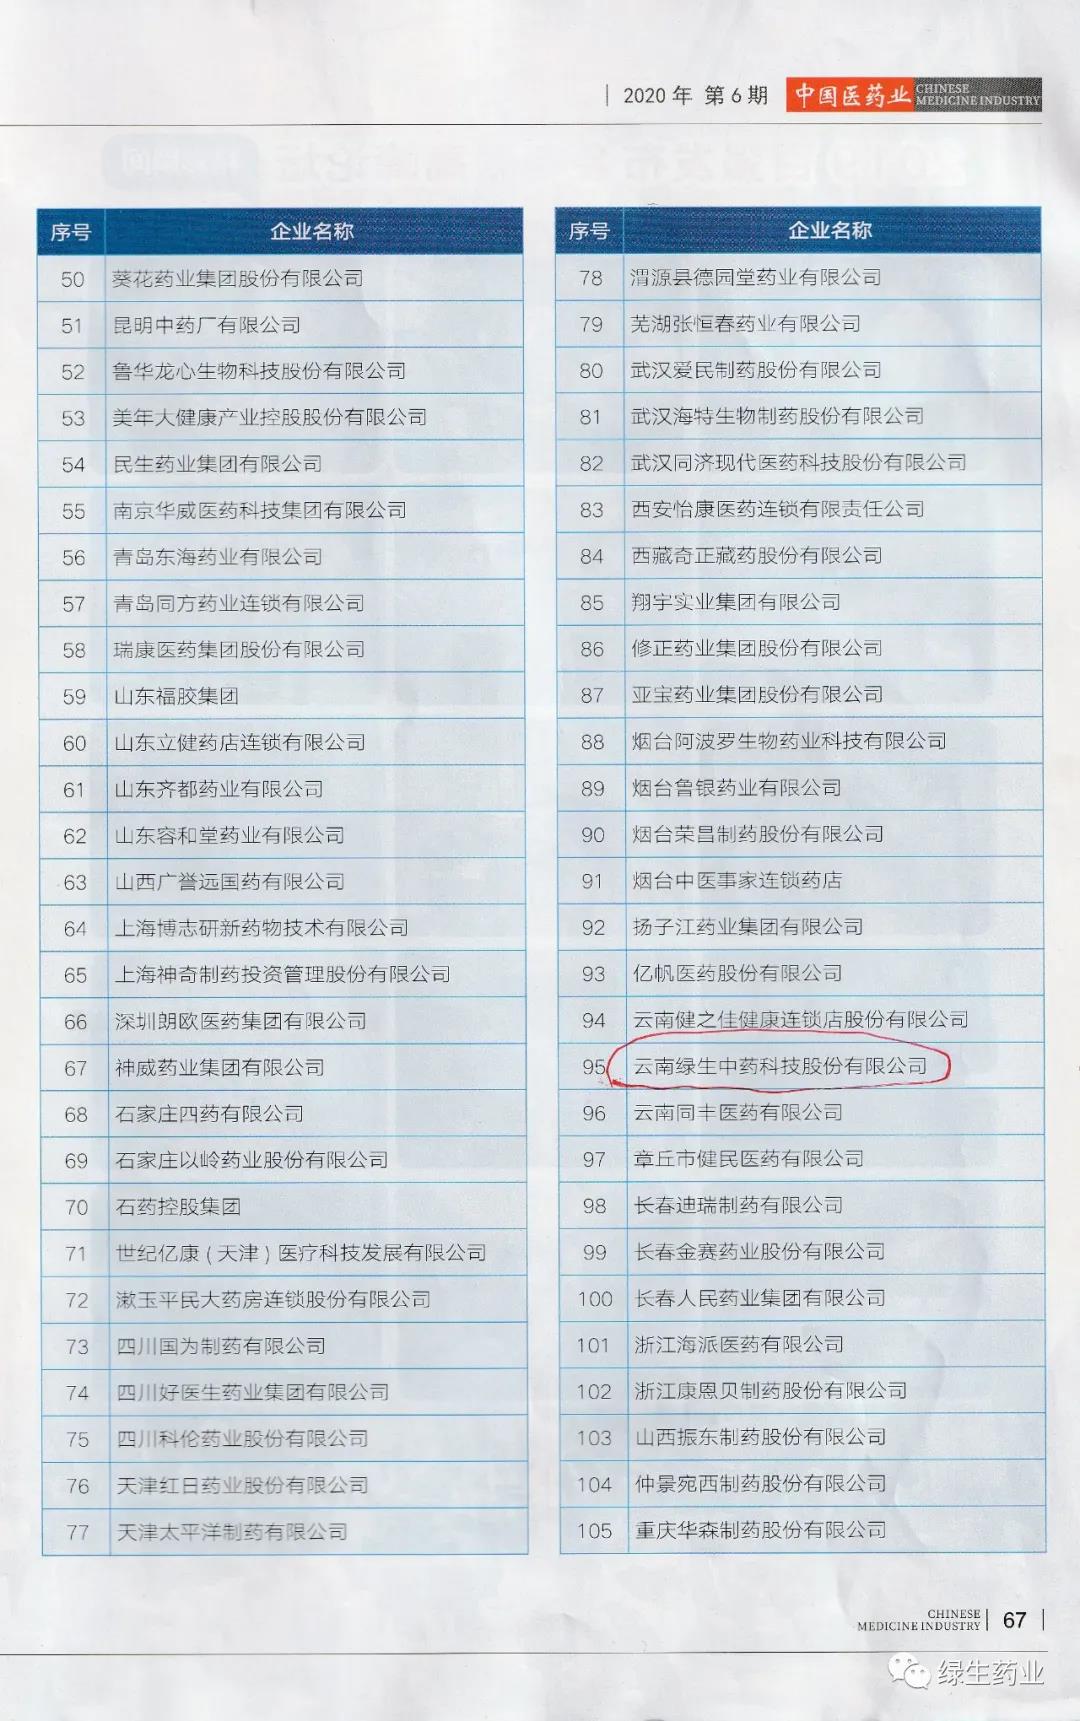 2020年 第6期 中国医药业 CHINESE
MEDICINE INDUSTRY
序号 企业名称
50 葵花药业集团股份有限公司
51 昆明中药厂有限公司
52 鲁华龙心生物科技股份有限公司
53 美年大健康产业控股股份有限公司
54 民生药业集团有限公司
55 南京华威医药科技集团有限公司
56 青岛东海药业有限公司
57 青岛同方药业连锁有限公司
58 瑞康医药集团股份有限公司
59 山东福胶集团
60 山东立健药店连锁有限公司
61 山东齐都药业有限公司
62 山东容和堂药业有限公司
63 山西广誉远国药有限公司
64 上海博志研新药物技术有限公司
65 上海神奇制药投资管理股份有限公司
66 深圳朗欧医药集团有限公司
67 神威药业集团有限公司
68 石家庄四药有限公司
69 石家庄以岭药业股份有限公司
70 石药控股集团
71 世纪亿康(天津)医疗科技发展有限公司
72 漱玉平民大药房连锁股份有限公司
73 四川国为制药有限公司
74 四川好医生药业集团有限公司
75 四川科伦药业股份有限公司
76 天津红日药业股份有限公司
77 天津太平洋制药有限公司
序号 企业名称
78 渭源县德园堂药业有限公司
79 芜湖张恒春药业有限公司
80 武汉爱民制药股份有限公司
81 武汉海特生物制药股份有限公司
82 武汉同济现代医药科技股份有限公司
83 西安怡康医药连锁有限责任公司
84 西藏奇正藏药股份有限公司
85 翔宇实业集团有限公司
86 修正药业集团股份有限公司
87 亚宝药业集团股份有限公司
88 烟台阿波罗生物药业科技有限公司
89 烟台鲁银药业有限公司
90 烟台荣昌制药股份有限公司
91 烟台中医事家连锁药店
92 扬子江药业集团有限公司
93 亿帆医药股份有限公司
94 云南健之佳健康连锁店股份有限公司
95 云南绿生中药科技股份有限公司
96 云南同丰医药有限公司
97 章丘市健民医药有限公司
98 长春迪瑞制药有限公司
99 长春金赛药业股份有限公司
100 长春人民药业集团有限公司
101 浙江海派医药有限公司
102 浙江康恩贝制药股份有限公司
103 山西振东制药股份有限公司
104 仲景宛西制药股份有限公司
105 重庆华森制药股份有限公司
CHINESE
MEDICINE INDUSTRY 67
绿生药业